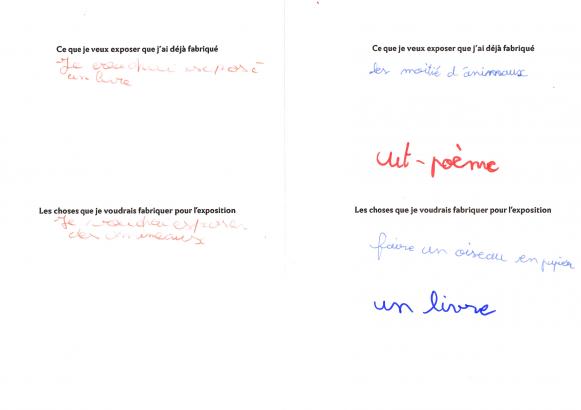 Ce que je veux exposer que j'ai déjà fabriqué
Je voudrai exposé
un livre
Les choses que je voudrais fabriquer pour l'exposition
Je voudrai exposer
des animeaux
Ce que je veux exposer que j'ai déjà fabriqué
les moitié d'animaux
art-poème
Les choses que je voudrais fabriquer pour l'exposition
faire un oiseau en papier
un livre